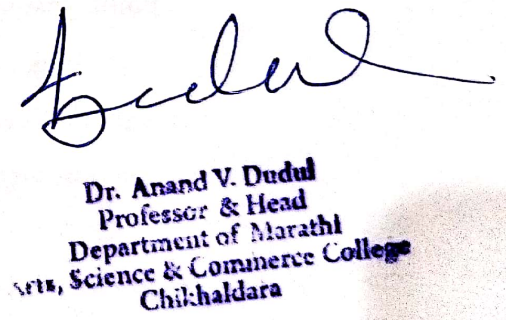 Dudul
Dr. Anand V. Dudul
Professor & Head
Department of Marathi
Arts, Science & Commerce College
Chikhaldara